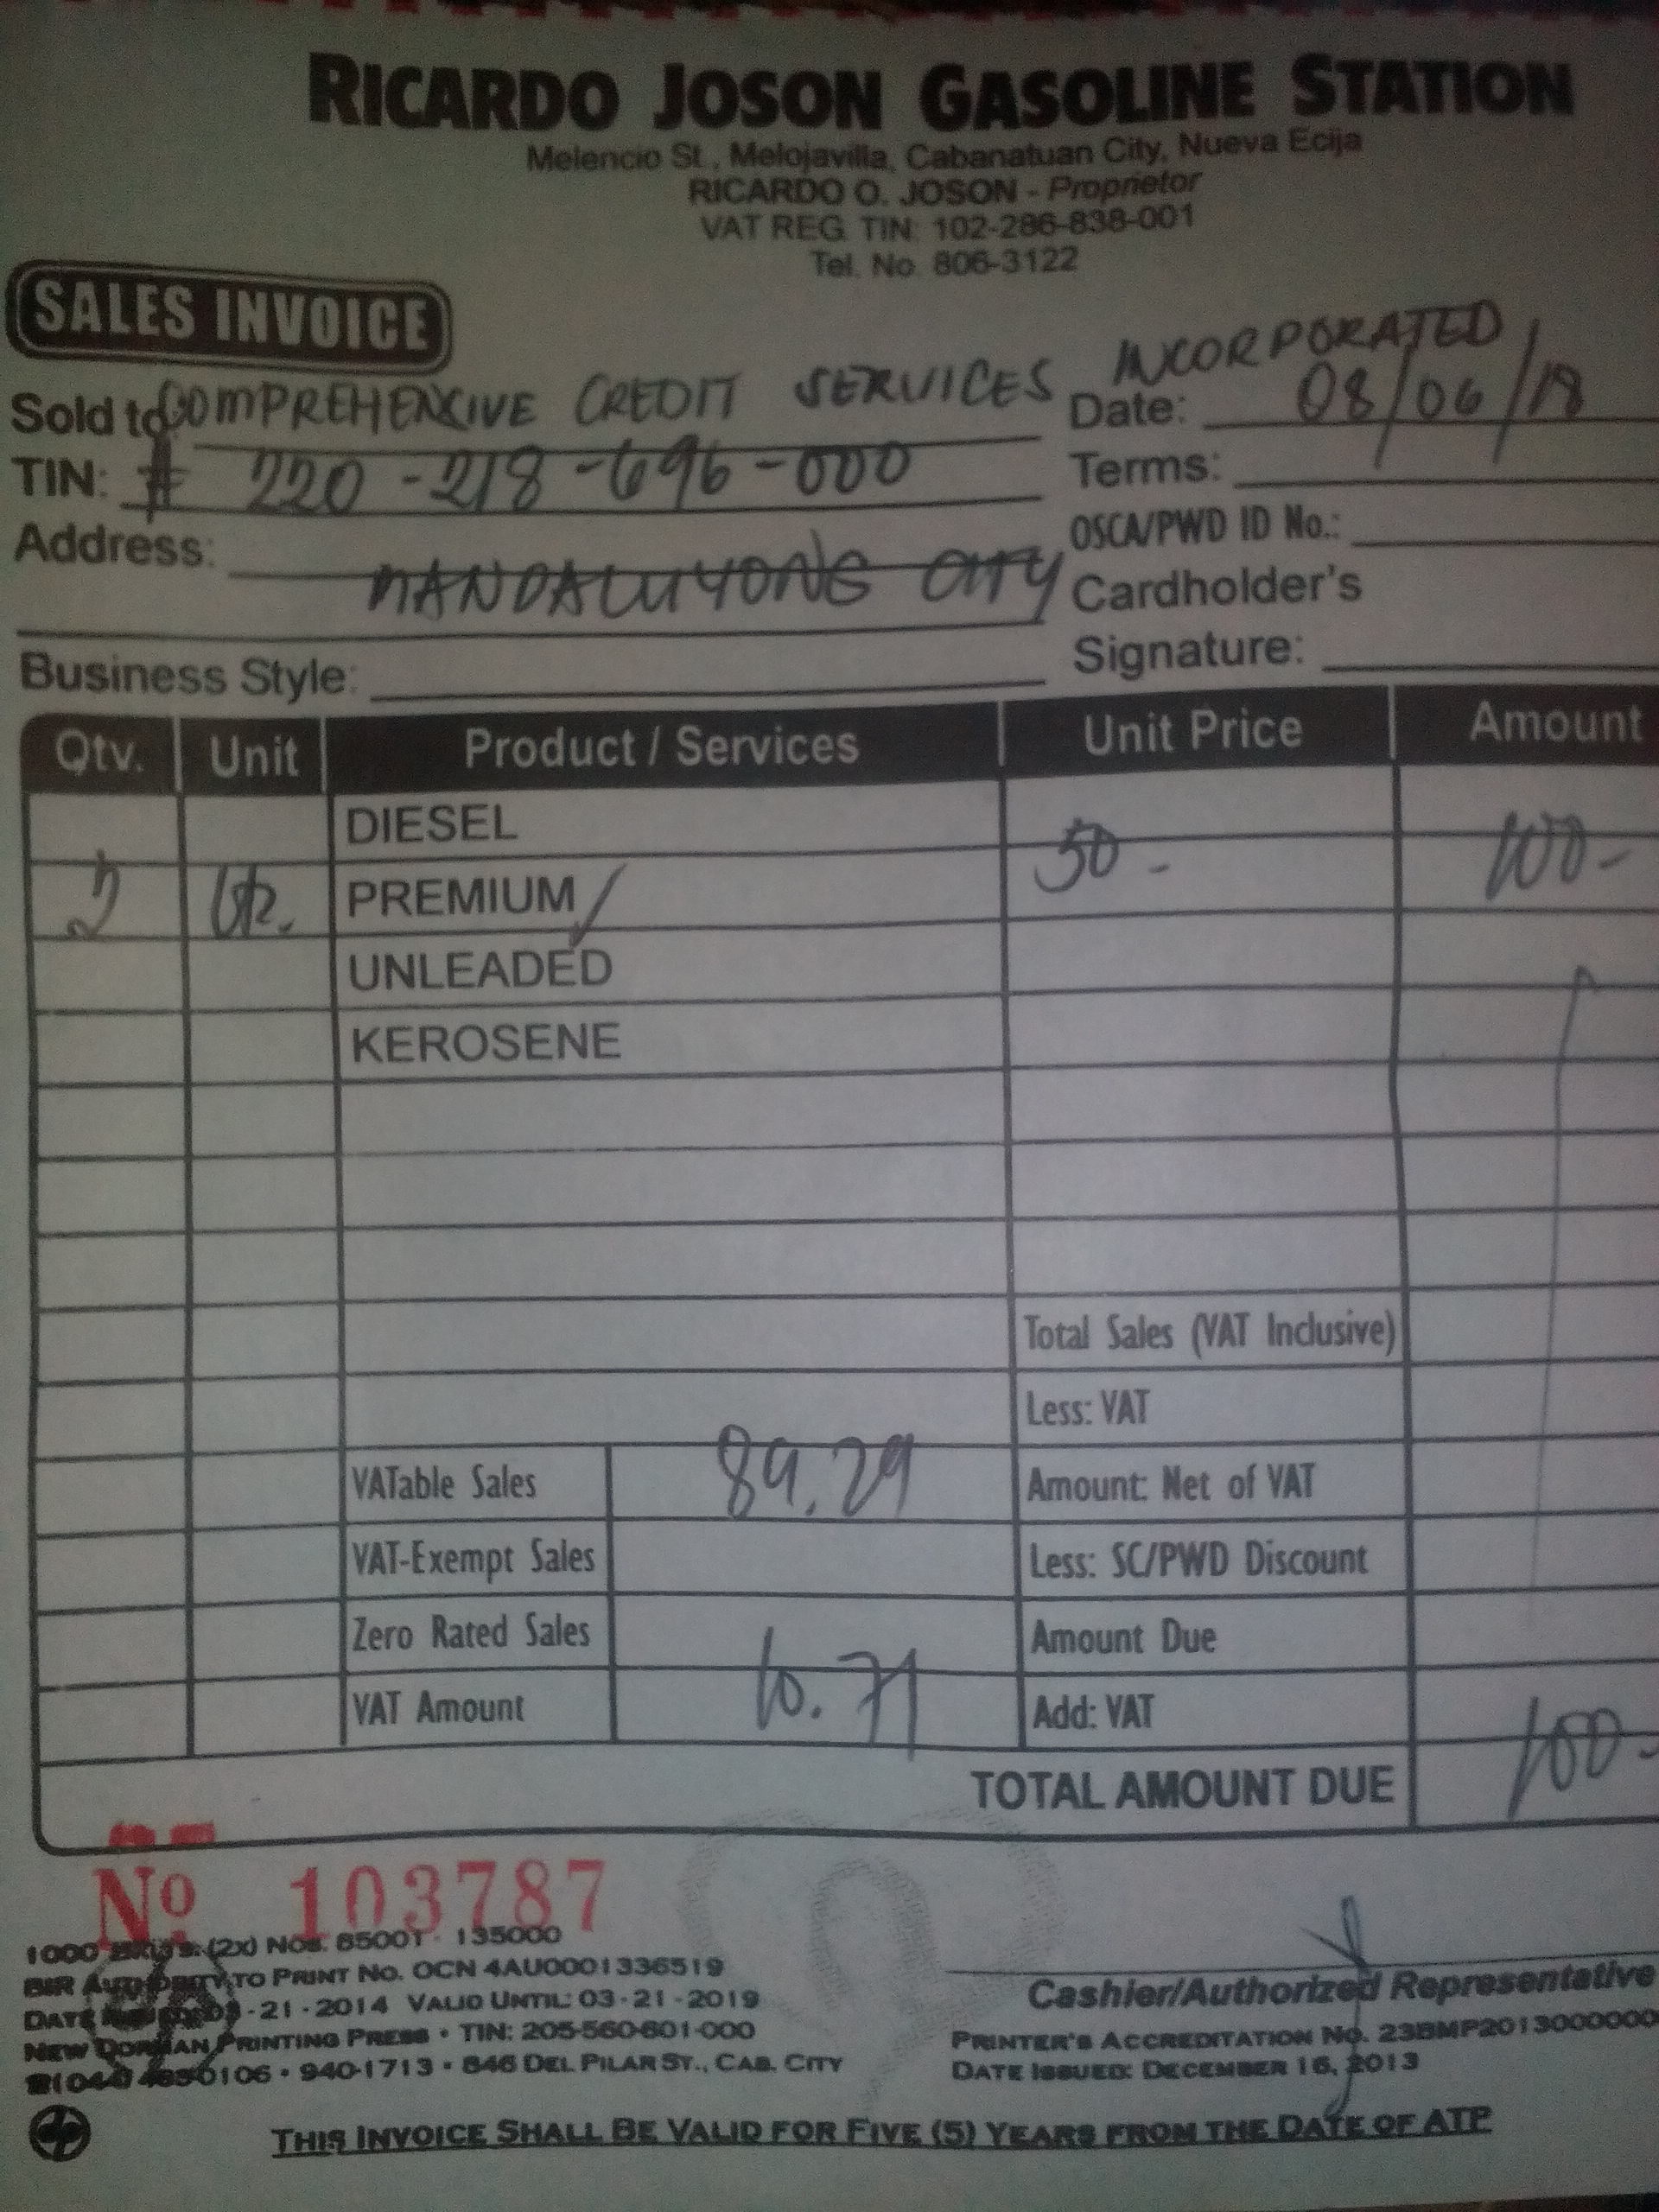 RICARDO JOSON GASOLINE STATION
Melencio St., Melojavilla, Cabanatuan City, Nueva Ecija
RICARDO O. JOSON - Proprietor
VAT REG. TIN: 102-286-838-001
Tel. No. 806-3122
SALES INVOICE
Sold to COMPREHENSIVE CREDIT SERVICES INCORPORATED
Date: 08/06/18
TIN: # 220-218-696-000
Terms:
Address: MANDALUYONG CITY
OSCA/PWD ID No.:
Cardholder's
Signature:
Business Style:
Qty. Unit Product / Services Unit Price Amount
DIESEL
2 PREMIUM 50- 100-
UNLEADED
KEROSENE
Total Sales (VAT Inclusive)
Less: VAT
VATable Sales 89.29 Amount: Net of VAT
VAT-Exempt Sales Less: SC/PWD Discount
Zero Rated Sales Amount Due
VAT Amount 10.71 Add: VAT
TOTAL AMOUNT DUE 100-
No 103787
1000 (2x) Nos. 85001 - 135000
BIR AUTHORITY TO PRINT No. OCN 4AU0001336519
DATE -21-2014 VALID UNTIL: 03-21-2019
NEW DORMAN PRINTING PRESS • TIN: 205-560-601-000
940-1713 • 846 DEL PILAR ST., CAB. CITY
Cashier/Authorized Representative
PRINTER'S ACCREDITATION No. 23BMP2013000000
DATE ISSUED: DECEMBER 16, 2013
THIS INVOICE SHALL BE VALID FOR FIVE (5) YEARS FROM THE DATE OF ATP